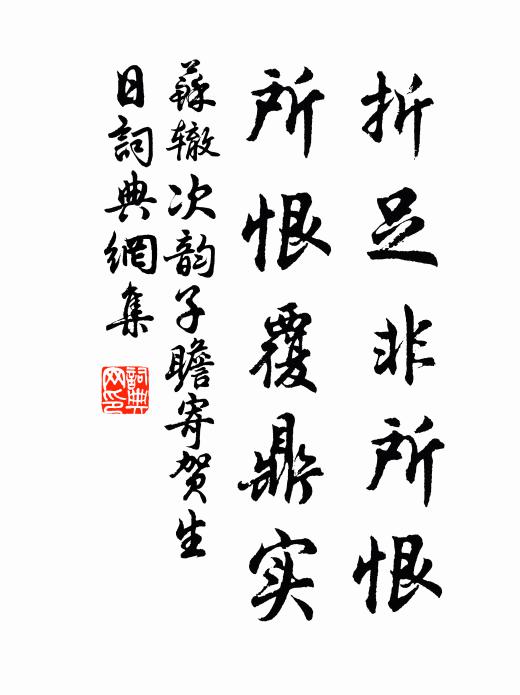 折足非所恨
所恨覆鼎实
蘇辙次韵子瞻寄贺生
日詞典網集
詞典
网印